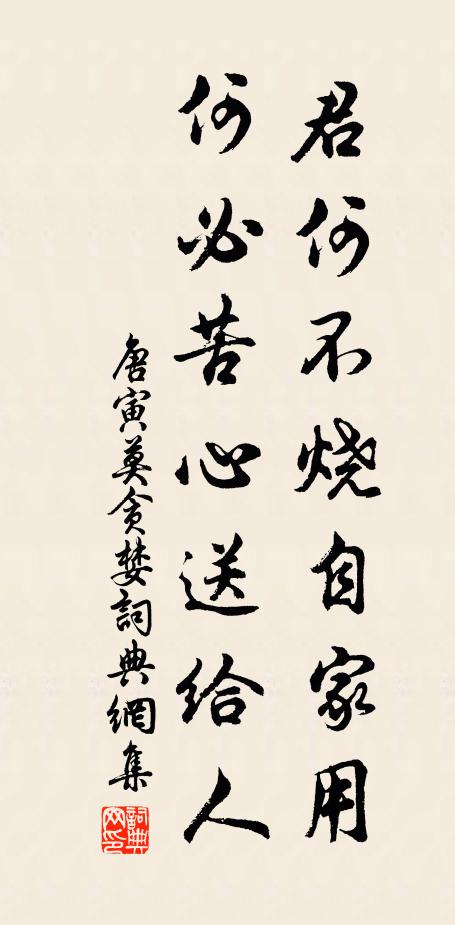 君何不烧自家用
何必苦心送给人
唐寅莫贪婪詞典網集
詞典网印